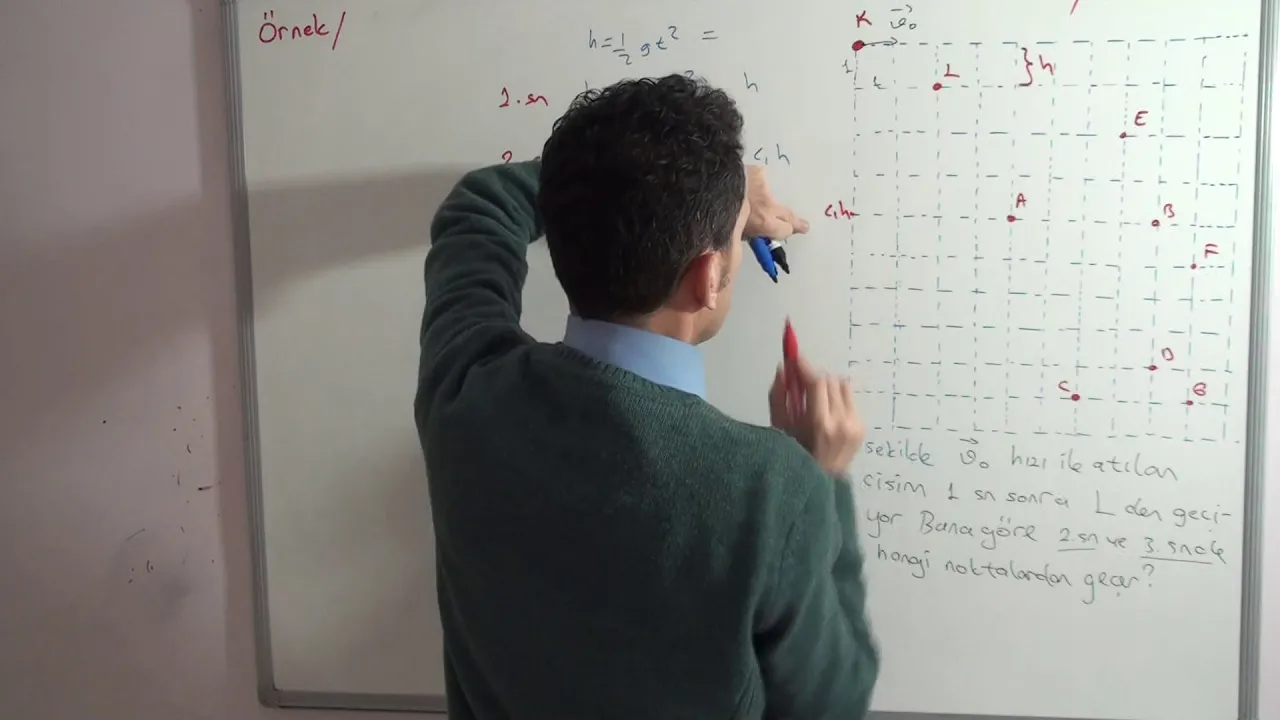 Örnek/
h=1/2 gt² =
1.sn h
2
K v⃗₀
L
} h
E
A
B
F
D
C
G
şekilde v⃗₀ hızı ile atılan
cisim 1 sn sonra L den geçi-
yor Buna göre 2.sn ve 3.snde
hangi noktalardan geçer?